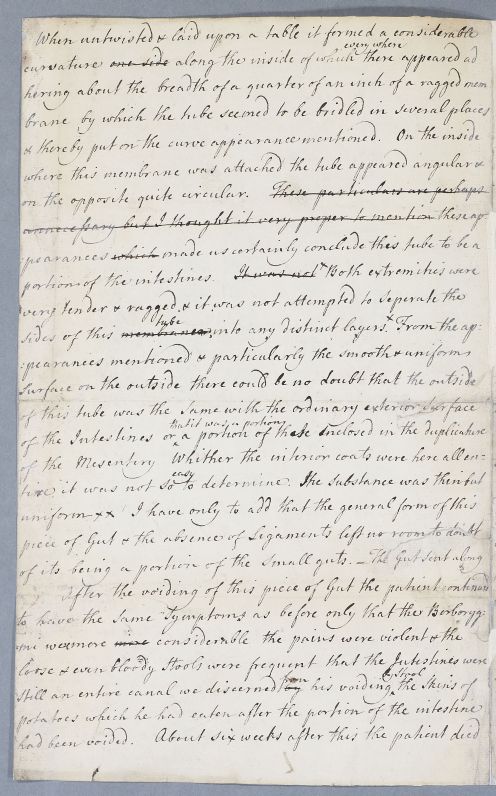 When untwisted & laid upon a table it formed a considerable
every where
curvature one side along the inside of which there appeared ad
hering about the breadth of a quarter of an inch of a ragged mem
brane by which the tube seemed to be bridled in several places
& thereby put on the curve appearance mentioned. On the inside
where this membrane was attached the tube appeared angular &
on the opposite quite circular. These particulars are perhaps
unnecessary but I thought it very proper to mention these ap-
:pearances which made us certainly conclude this tube to be a
portion of the intestines. It was not Both extremities were
very tender & ragged & it was not attempted to seperate the
tube
sides of this membranes into any distinct layers. From the ap-
:pearances mentioned & particularly the smooth & uniform
surface on the outside there could be no doubt that the outside
of this tube was the same with the ordinary exterior surface
that it was a portion
of the Intestines or a portion of those inclosed in the duplicature
of the Mesentery Whither the interior coats were here all en-
easy
tire, it was not so to determine. The substance was thin but
uniform xx I have only to add that the general form of this
piece of Gut & the absence of Ligaments left no room to doubt
of its being a portion of the small guts. The Gut sent along
After the voiding of this piece of Gut the patient continued
to have the same Symptoms as before only that the Borboryg-
mi were more considerable the pains were violent & the
loose & even bloody Stools were frequent that the Intestines were
from by Stool
still an entire canal we discerned by his voiding the skins of
potatoes which he had eaten after the portion of the intestine
had been voided. About six weeks after this the patient died